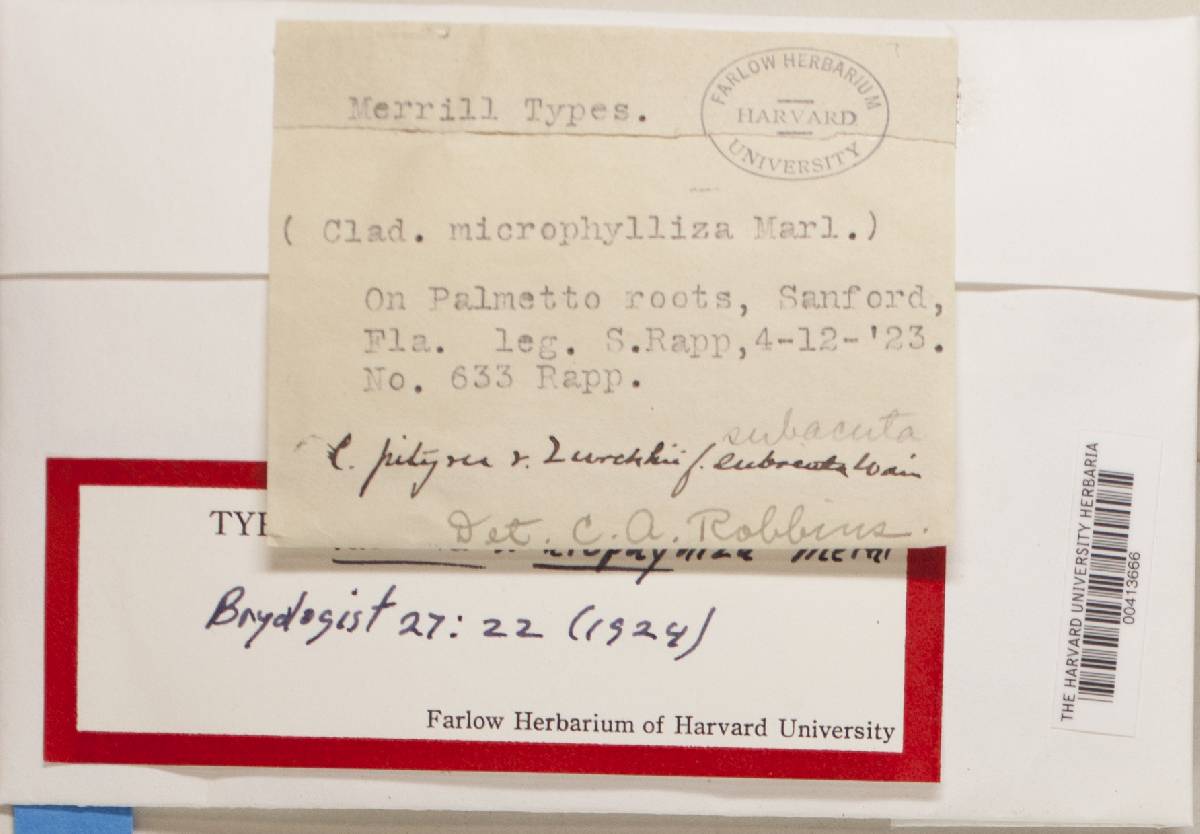 Merrill Types.
FARLOW HERBARIUM
HARVARD
UNIVERSITY
( Clad. microphylliza Marl.)
On Palmetto roots, Sanford,
Fla. leg. S.Rapp,4-12-'23.
No. 633 Rapp.
subacuta
C. pityrea v. Zwackhii f. subacuta Wain
Det. C. A. Robbins.
TYP
microphylliza Merril
Bryologist 27: 22 (1924)
Farlow Herbarium of Harvard University
THE HARVARD UNIVERSITY HERBARIA
00413666